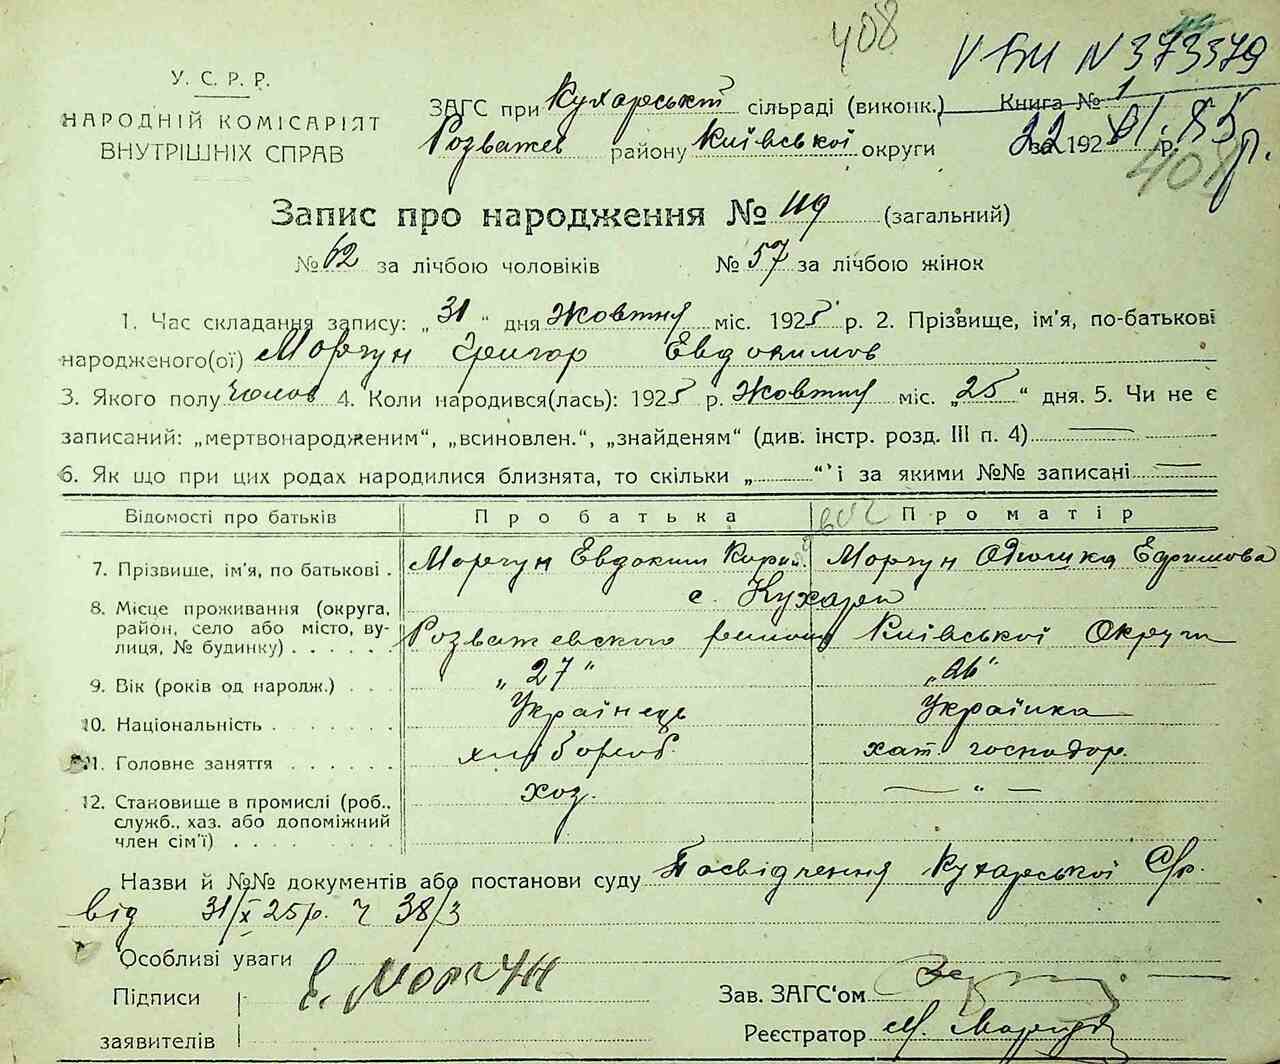 408
V-БМ № 373379
У. С. Р. Р.
НАРОДНІЙ КОМІСАРІЯТ
ВНУТРІШНІХ СПРАВ
ЗАГС при Кухарській сільраді (виконк.) Книга № 1
Розважев району Київської округи за 192 р.
22 01. 85 р.
408
Запис про народження № 119 (загальний)
№ 62 за лічбою чоловіків № 57 за лічбою жінок
1. Час складання запису: „ 31 “ дня Жовтня міс. 1925 р. 2. Прізвище, ім'я, по-батькові
народженого(ої) Моргун Григор Евдокимов
3. Якого полу Чолов 4. Коли народився(лась): 1925 р. Жовтня міс. „25 “ дня. 5. Чи не є
записаний: „мертвонародженим“, „всиновлен.“, „знайденям“ (див. інстр. розд. III п. 4)
6. Як що при цих родах народилися близнята, то скільки „ “ і за якими №№ записані
Відомості про батьків Про батька Про матір
7. Прізвище, ім'я, по батькові . Моргун Евдоким Моргун Ефимова
8. Місце проживання (округа, с. Кухари
район, село або місто, ву- Розважевского району Київської Округи
лиця, № будинку) . . . . . .
9. Вік (років од народж.) . . . „27“ „26“
10. Національність . . . . . . . Українець Українка
11. Головне заняття . . . . . . хлібороб. хат господар.
12. Становище в промислі (роб., хоз. — " —
служб., хаз. або допоміжний
член сім'ї) . . . . . . . . .
Назви й №№ документів або постанови суду Посвідчення Кухарської С/р.
від 31/X 25 р. Ч 38/3
Особливі уваги
Підписи Е. Моргун Зав. ЗАГС'ом
заявителів Реєстратор М.